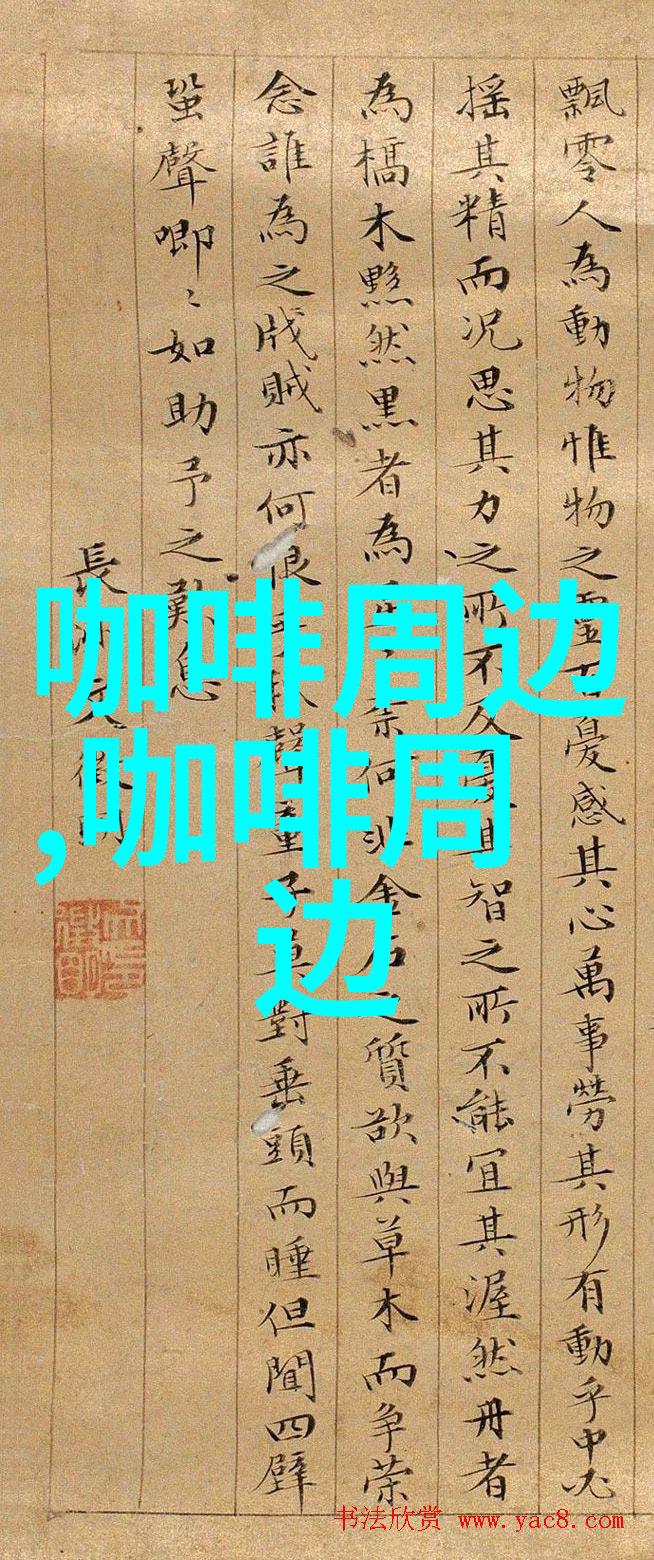 飄零人為動物惟物之靈百憂感其心萬事勞其形有動乎中必
搖其精而況思其力之所不及憂其智之所不能宜其渥然丹者
為槁木黟然黑者為奈何非金石之質欲與草木而爭榮
念誰為之戕賊亦何恨乎秋聲童子莫對垂頭而睡但聞四壁
蛩聲唧〻如助予之歎息
長洲文徵明
咖啡周边
,咖啡周
边
书法欣赏 www.yac8.com